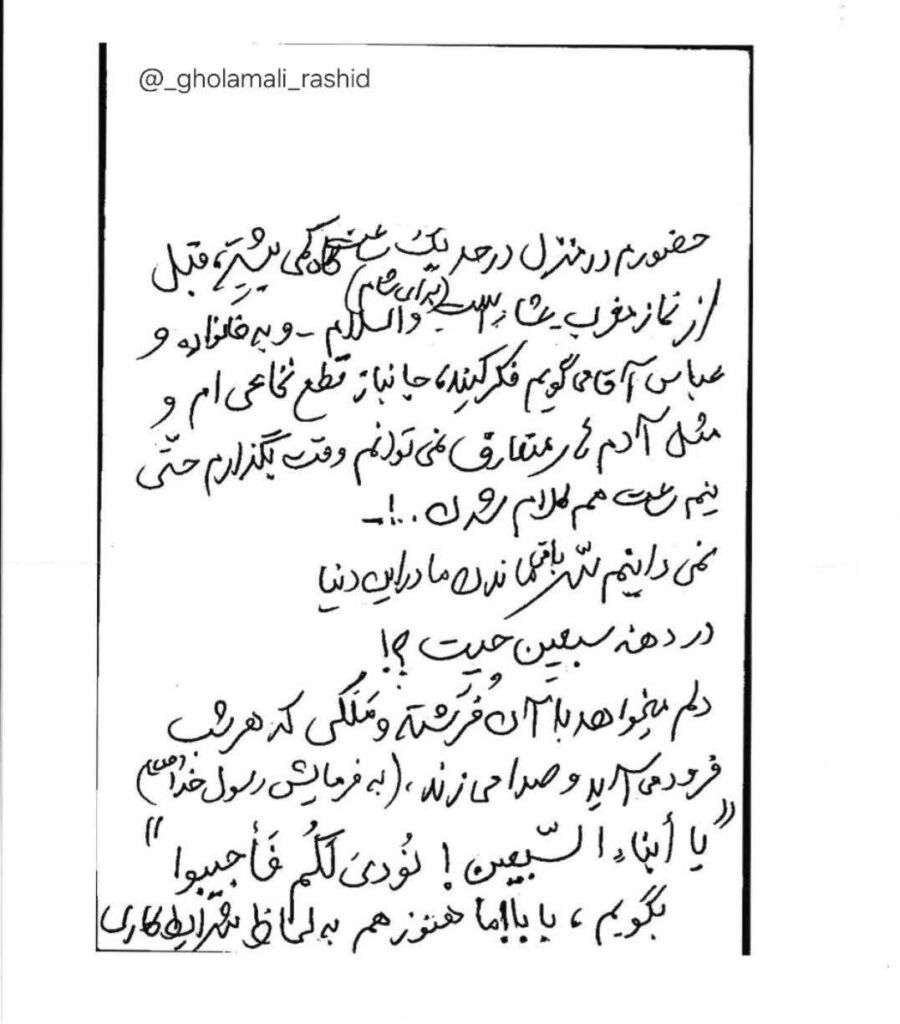 @_gholamali_rashid
حضورم در منزل در حد یک ساعت گاه کمی بیشتر، قبل
از نماز مغرب عشاء است (برای شام) والسلام - و به خانواده و
عباس آقا می‌گویم فکر کنید، جانباز قطع نخاعی ام و
مثل آدم های متعارف نمی توانم وقت بگذارم حتّی
نیم ساعت هم کلام شدن ...!_
نمی دانیم سّر باقی ماندن ما در این دنیا
در دهه سبعین چیست ؟!
دلم میخواهد با آن فُرشته و مَلَکی که هر شب
فرود می آید و صدا می زند، (به فرمایش رسول خدا (ص))
"یا أبناءِ السّبعین ! نُودیَ لَکُم فَأجیبوا"
بگویم، بابا اما هنوز هم به لحاظ شرایط کاری